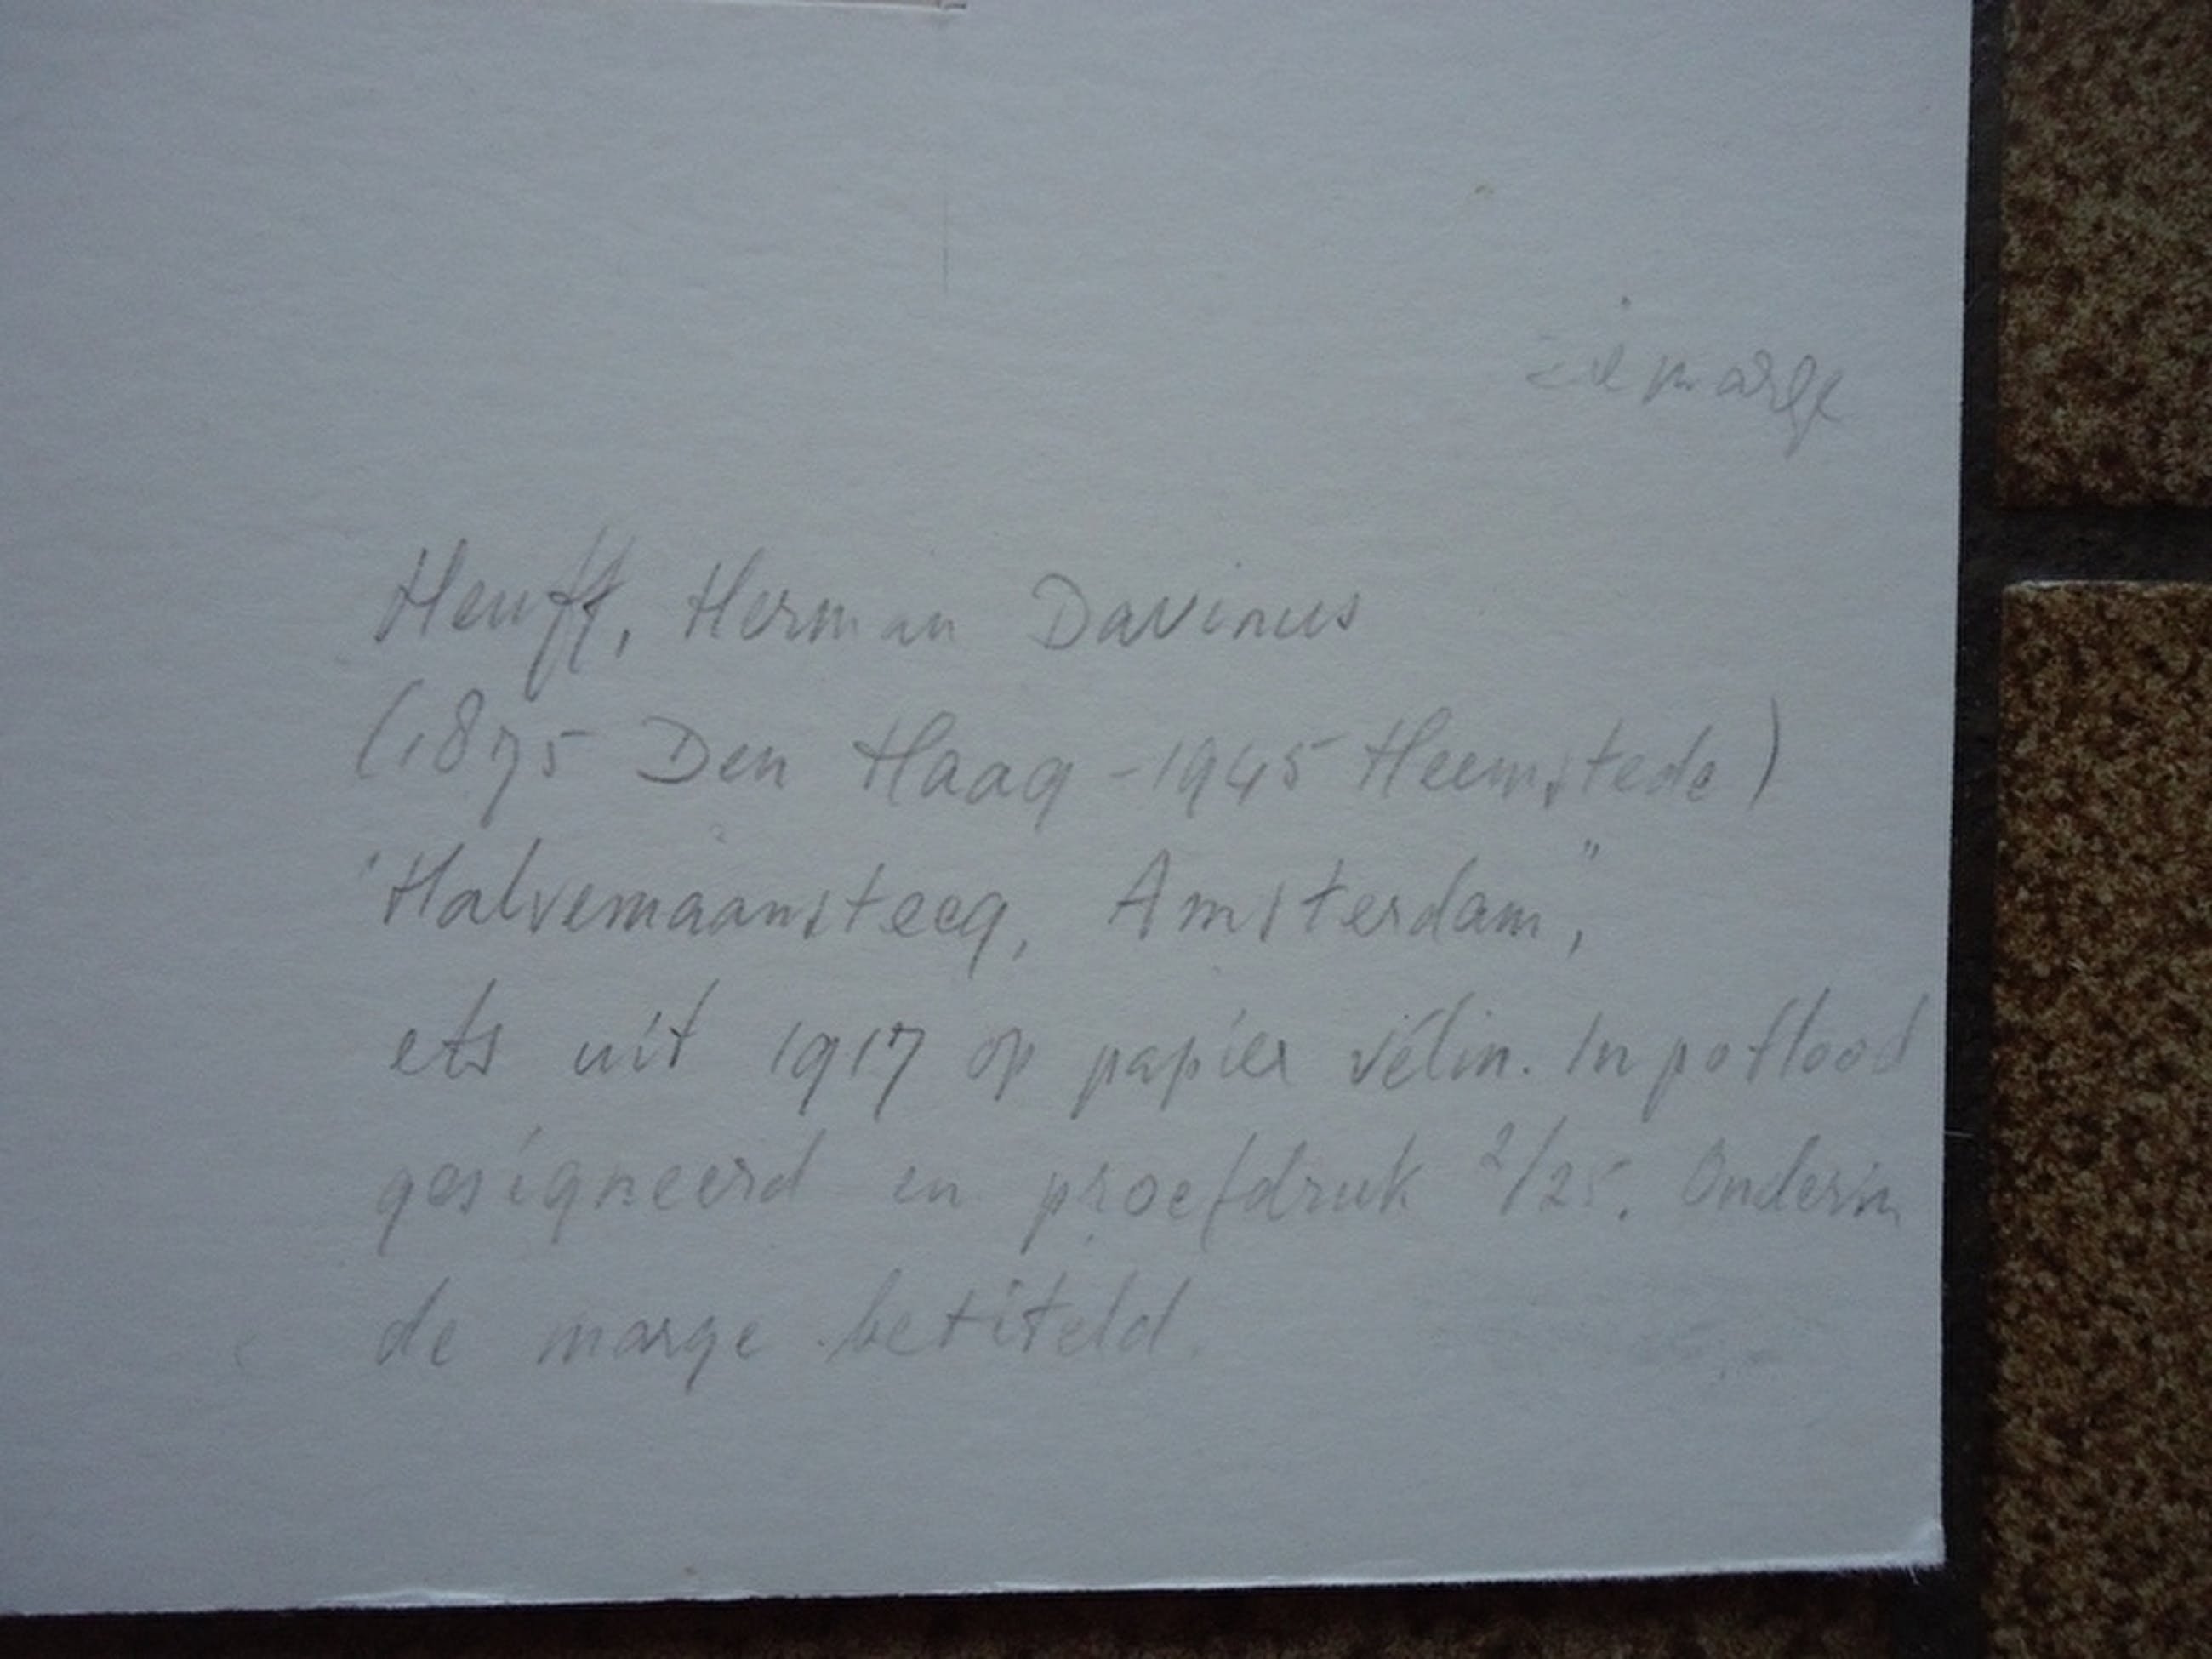 zie marge
Heuff, Herman Davinus
(1875 Den Haag - 1945 Heemstede)
"Halvemaansteeg, Amsterdam",
ets uit 1917 op papier vélin. In potlood
gesigneerd en proefdruk 2/25. Onderin
de marge betiteld.